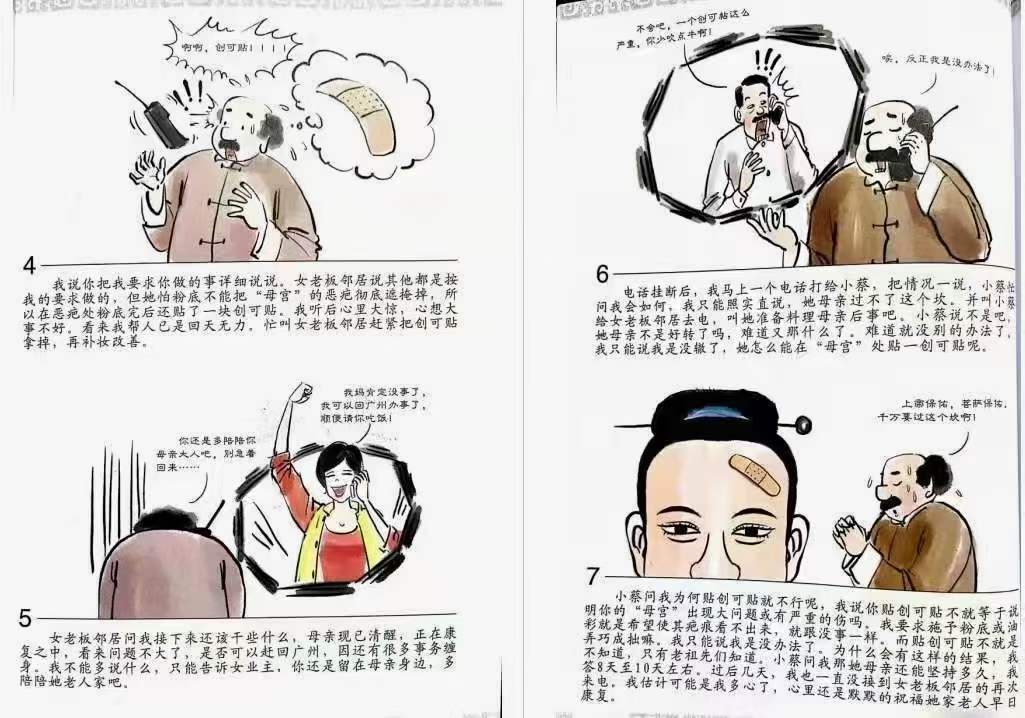 啊啊，创可贴！！！！
4
我说你把我要求你做的事详细说说。女老板邻居说其他都是按
我的要求做的，但她怕粉底不能把“母宫”的恶疤彻底遮掩掉，所
以在恶疤处粉底完后还贴了一块创可贴。我听后心里大惊，心想大
事不好。看来我帮人已是回天无力。忙叫女老板邻居赶紧把创可贴
拿掉，再补妆改善。
我妈肯定没事了，
我可以回广州办事了，
顺便请你吃饭！
你还是多陪陪你
母亲大人吧，别急着
回来……
5
女老板邻居问我接下来还该干些什么，母亲现已清醒，正在康
复之中，看来问题不大了，是否可以赶回广州，因还有很多事务缠
身。我不能多说什么，只能告诉女业主，你还是留在母亲身边，多
陪陪她老人家吧。
不会吧，一个创可贴这么
严重，你少吹点牛啊！
唉，反正我是没办法了！
6
电话挂断后，我马上一个电话打给小蔡，把情况一说，小蔡忙
问我会如何，我只能照实直说，她母亲过不了这个坎。并叫小蔡
给女老板邻居去电，叫她准备料理母亲后事吧。小蔡说不是吧，
她母亲不是好转了吗，难道又那什么了。难道就没别的办法了，
我只能说我是没辙了，她怎么能在“母宫”处贴一创可贴呢。
上帝保佑，菩萨保佑，
千万要过这个坎啊！
7
小蔡问我为何贴创可贴就不行呢，我说你贴创可贴不就等于说
明你的“母宫”出现大问题或有严重的伤吗。我要求施予粉底或油
彩就是希望使其疤痕看不出来，就跟没事一样。而贴创可贴不就是
弄巧成拙嘛。我只能说我是没办法了。为什么会有这样的结果，我
不知道，只有老祖先们知道。小蔡问我那她母亲还能坚持多久，我
答8天至10天左右。过后几天，我也一直没接到女老板邻居的再次
来电。我估计可能是我多心了，心里还是默默的祝福她家老人早日
康复。